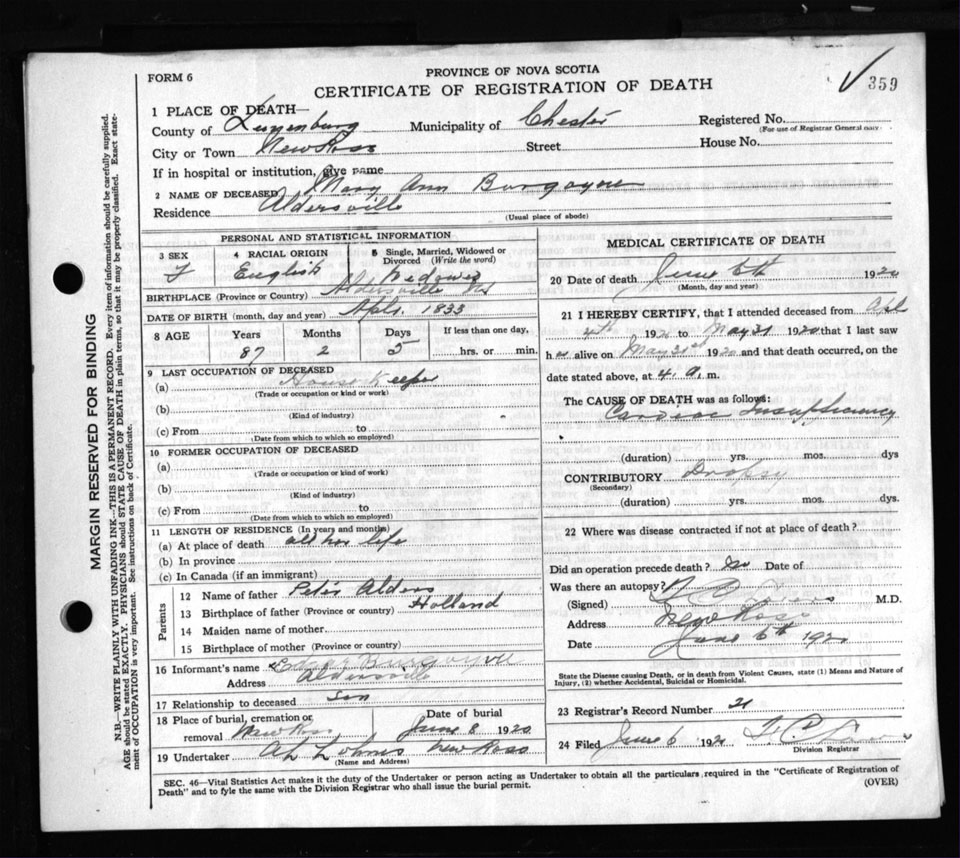 FORM 6
PROVINCE OF NOVA SCOTIA
CERTIFICATE OF REGISTRATION OF DEATH
359
1 PLACE OF DEATH—
County of Lunenburg Municipality of Chester Registered No.
(For use of Registrar General only.
City or Town New Ross Street House No.
If in hospital or institution, give name
2 NAME OF DECEASED Mary Ann Burgoyne
Residence Aldersville
(Usual place of abode)
PERSONAL AND STATISTICAL INFORMATION
3 SEX 4 RACIAL ORIGIN 5 Single, Married, Widowed or Divorced (Write the word)
F English Widowed
BIRTHPLACE (Province or Country) Aldersville NS
DATE OF BIRTH (month, day and year) Apl. 1833
8 AGE Years Months Days If less than one day,
87 2 5 hrs. or min.
9 LAST OCCUPATION OF DECEASED
(a) House Keeper
(Trade or occupation or kind or work)
(b)
(Kind of industry)
(c) From to
(Date from which to which so employed)
10 FORMER OCCUPATION OF DECEASED
(a)
(Trade or occupation or kind of work)
(b)
(Kind of industry)
(c) From to
(Date from which to which so employed)
11 LENGTH OF RESIDENCE (In years and months)
(a) At place of death all her life
(b) In province
(c) In Canada (if an immigrant)
Parents
12 Name of father Peter Alders
13 Birthplace of father (Province or country) Holland
14 Maiden name of mother
15 Birthplace of mother (Province or country)
16 Informant's name Burgoyne
Address Aldersville
17 Relationship to deceased son
18 Place of burial, cremation or removal New Ross Date of burial June 8 1920
19 Undertaker New Ross
(Name and Address)
MEDICAL CERTIFICATE OF DEATH
20 Date of death June 6th 1920
(Month, day and year)
21 I HEREBY CERTIFY, that I attended deceased from Apl
4th 1920 to May 31 1920 that I last saw
her alive on May 31st 1920 and that death occurred, on the
date stated above, at 4. a.m.
The CAUSE OF DEATH was as follows:
Cardiac Insufficiency
(duration) yrs. mos. dys
CONTRIBUTORY Dropsy
(Secondary)
(duration) yrs. mos. dys.
22 Where was disease contracted if not at place of death?
Did an operation precede death? no Date of
Was there an autopsy?
(Signed) M.D.
Address New Ross
Date June 6th 1920
State the Disease causing Death, or in death from Violent Causes, state (1) Means and Nature of Injury, (2) whether Accidental, Suicidal or Homicidal.
23 Registrar's Record Number 21
24 Filed June 6 1920
Division Registrar
SEC. 46—Vital Statistics Act makes it the duty of the Undertaker or person acting as Undertaker to obtain all the particulars required in the "Certificate of Registration of
Death" and to fyle the same with the Division Registrar who shall issue the burial permit. (OVER)
MARGIN RESERVED FOR BINDING
N.B.—WRITE PLAINLY WITH UNFADING INK—THIS IS A PERMANENT RECORD. Every item of information should be carefully supplied.
AGE should be stated EXACTLY. PHYSICIANS should STATE CAUSE OF DEATH in plain terms, so that it may be properly classified. Exact state-
ment of OCCUPATION is very important. See instructions on back of Certificate.